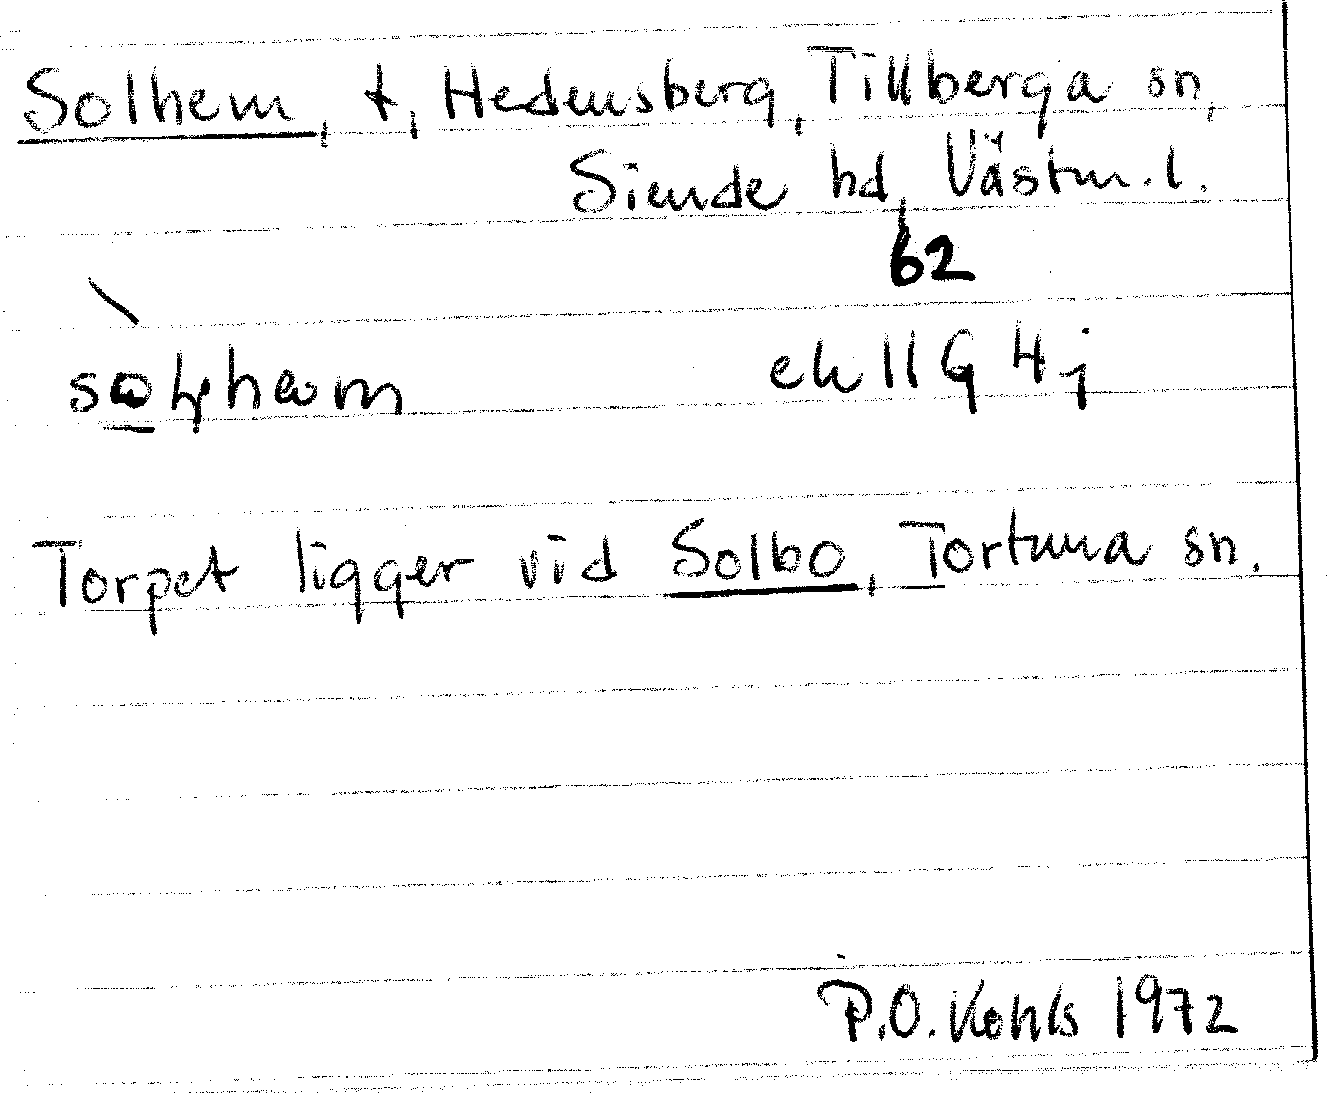 Solhem, t, Hedensberg, Tillberga sn,
Siende hd, Västm. l.
62
ek 11 G 4 j
Torpet ligger vid Solbo, Tortuna sn.
P.O. Kohls 1972